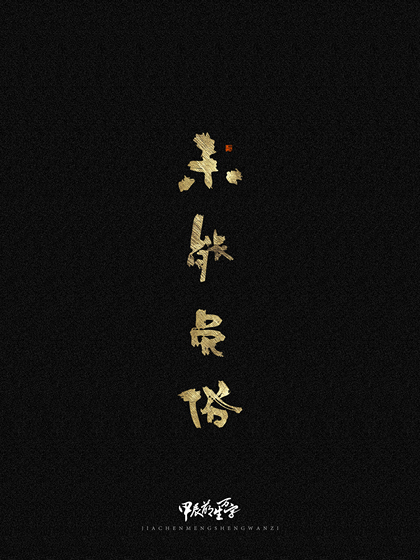 未能免俗
甲辰萌生万字
JIACHENMENGSHENGWANZI